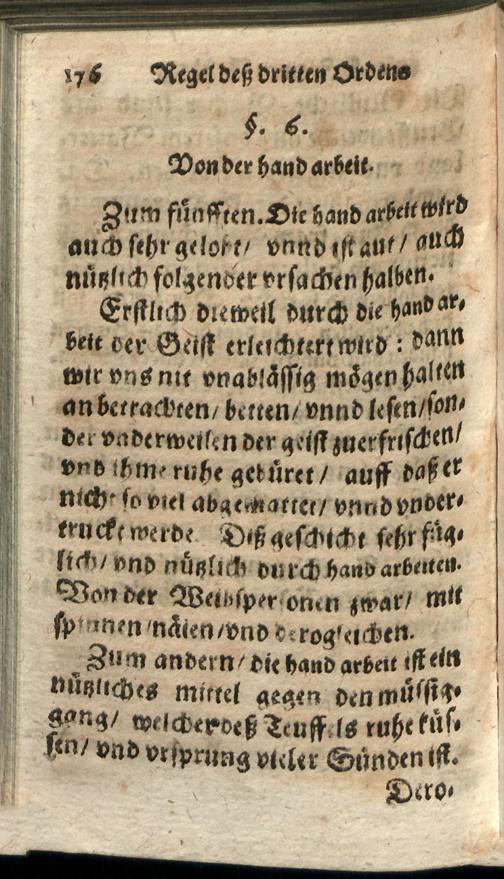 176 Regel deß dritten Ordens
§. 6.
Von der hand arbeit.
Zum fünfften. Die hand arbeit wird
auch sehr gelobt/ vnnd ist gut/ auch
nützlich folgender vrsachen halben.
Erstlich dieweil durch die hand ar-
beit der Geist erleichtert wird: dann
wir vns nit vnablässig mögen halten
an betrachten/ betten/ vnnd lesen/ son-
der vnderweilen der geist zuerfrischen/
vnd ihme ruhe gebüret/ auff daß er
nicht so viel abgemattet/ vnnd vnder-
truckt werde. Diß geschicht sehr füg-
lich/ vnd nützlich durch hand arbeiten.
Von der Weibspersonen zwar/ mit
spinnen/ näien/ vnd derogleichen.
Zum andern/ die hand arbeit ist ein
nützliches mittel gegen den müssig-
gang/ welcher deß Teuffels ruhe küs-
sen/ vnd vrsprung vieler Sünden ist.
Dero-